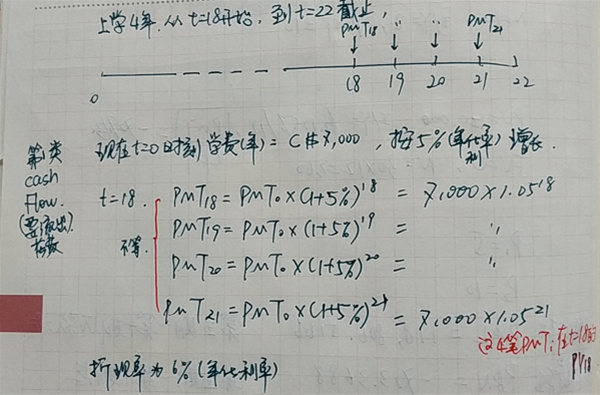 上学4年.从t=18开始,到t=22截止,
PMT18 〃 〃 PMT21
0 18 19 20 21 22
现在t=0时刻学费(年)=C$7,000,按5%(年化利率)增长.
第1类
cash
flow.
t=18. PMT18=PMT0×(1+5%)^18 = 7,000×1.05^18
不等. PMT19=PMT0×(1+5%)^19 = 〃
PMT20=PMT0×(1+5%)^20 = 〃
PMT21=PMT0×(1+5%)^21 = 7,000×1.05^21
这4笔PMT,在t=18的
PV18
折现率为6%(年化利率)